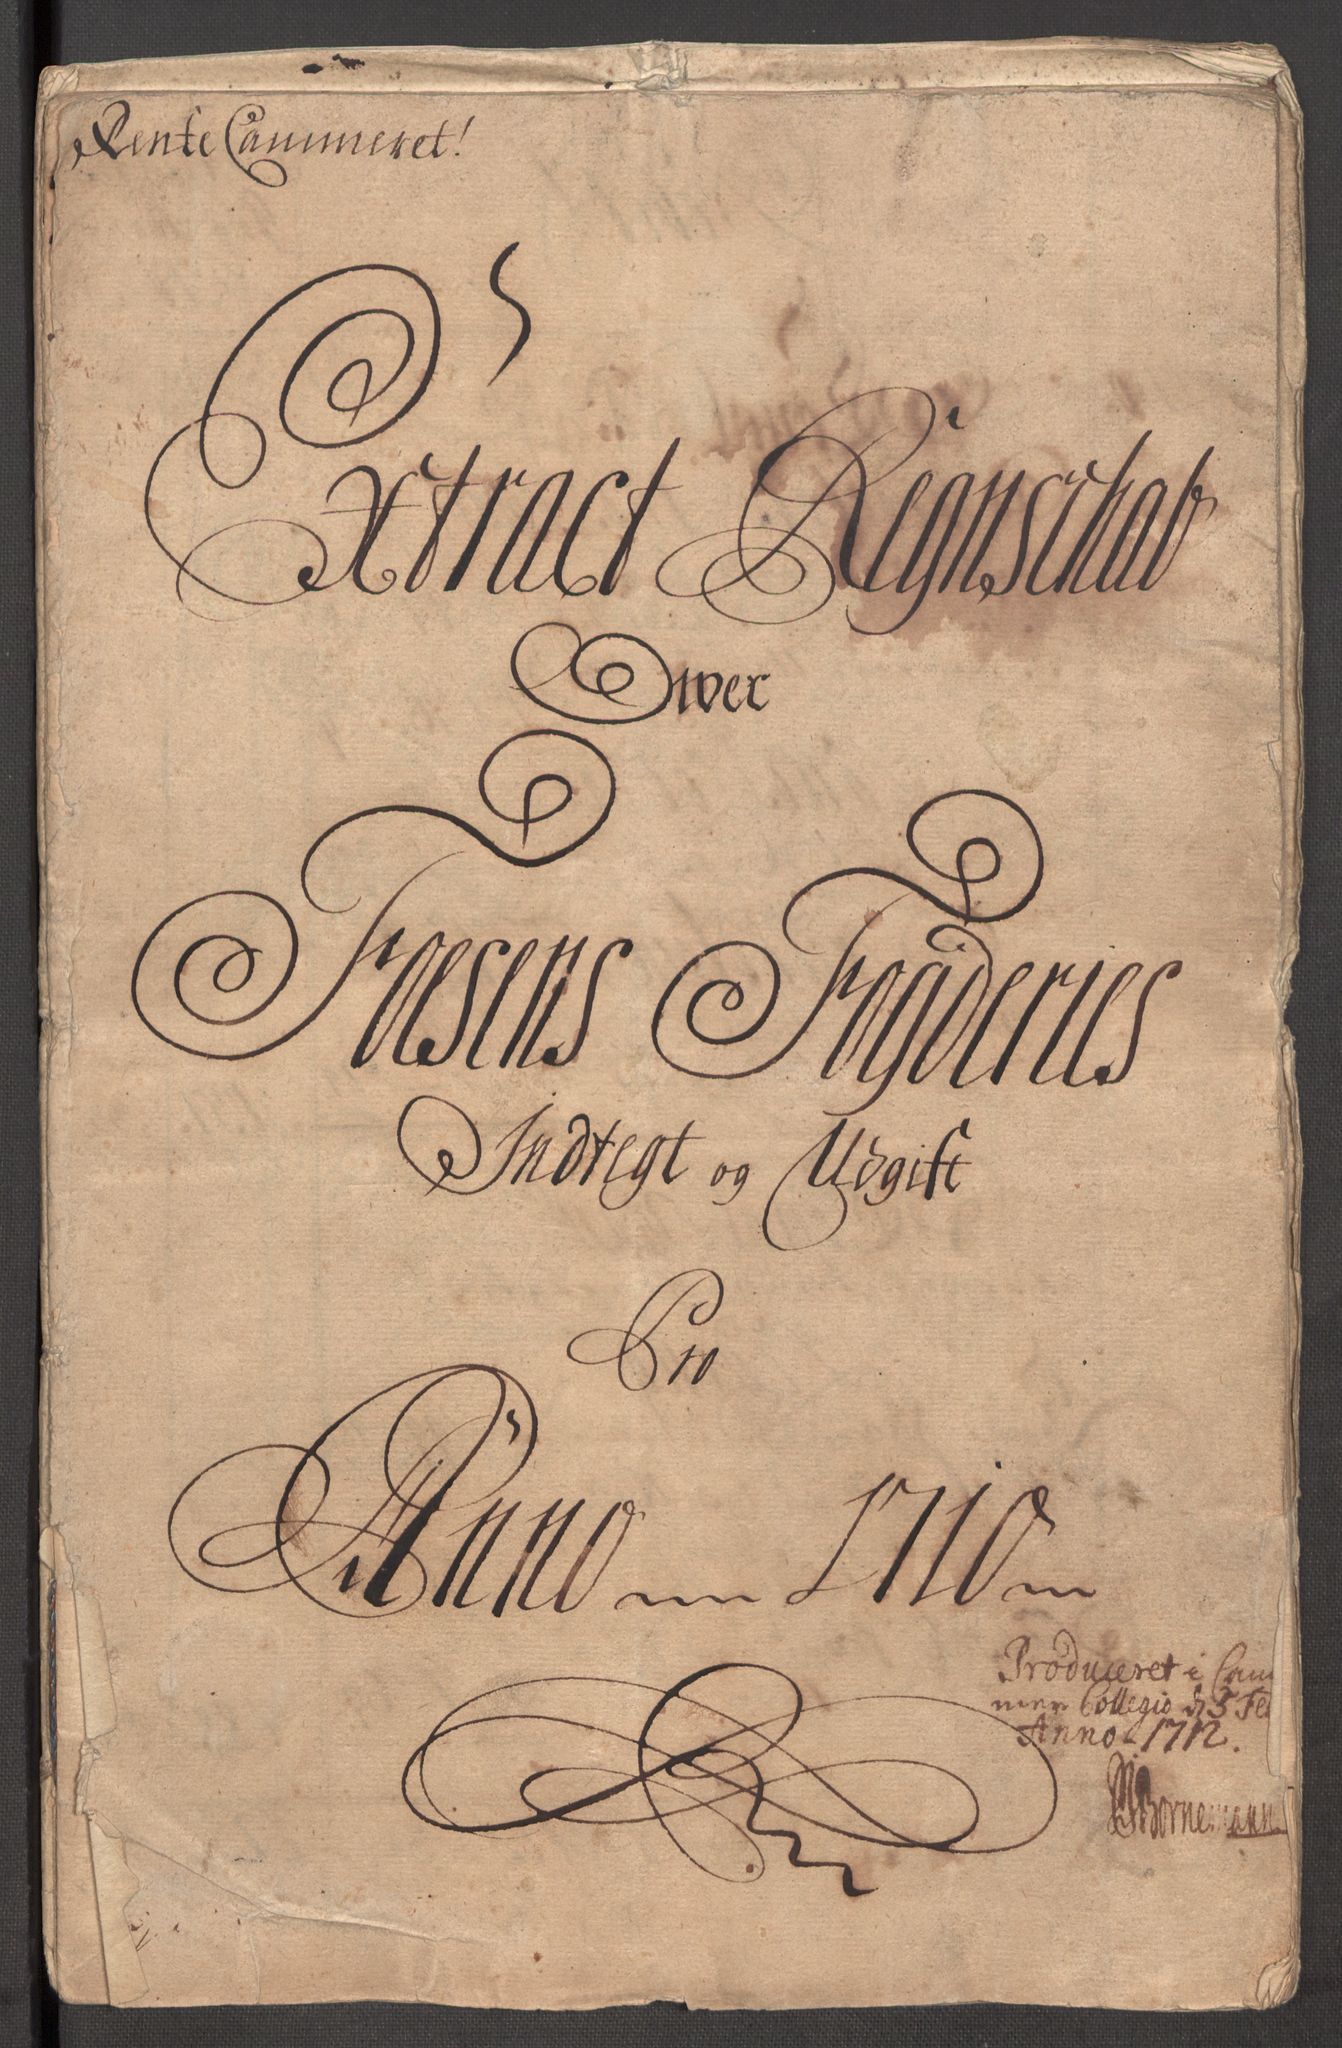 Rente Cammeret!
Extract Regnschab
Over
Fosens Fogderies
Indtegt og Udgift
Pro
Anno 1710
Produceret i Cam
mer Collegio d 3 Feb
Anno 1712.
Bornemann